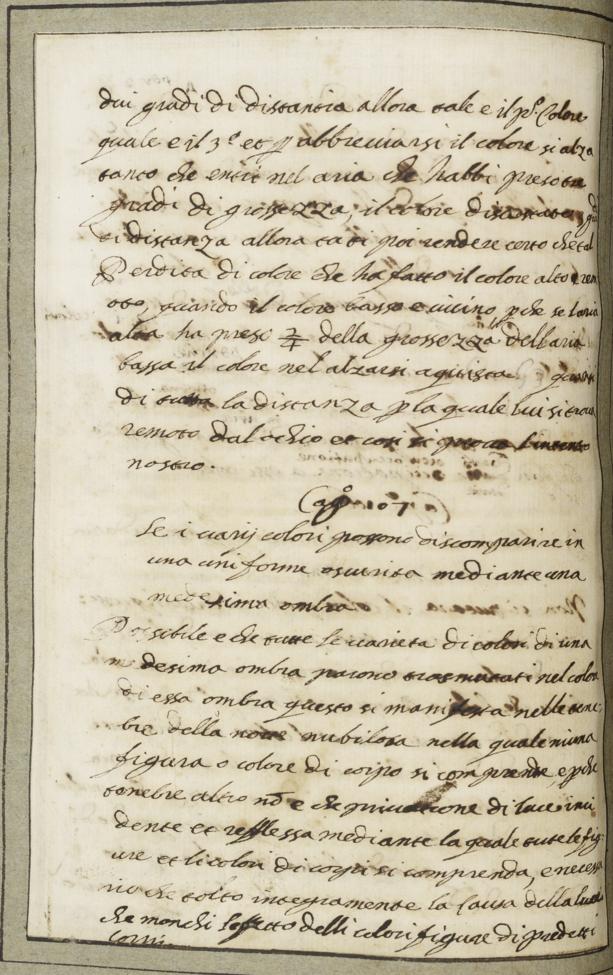 dui gradi di distantia allora tale e il p.º Colore
quale e il 3º et p abbreviarsi il colore si alza
tanto che entri nel aria che habbi preso tre
gradi di grossezza, il colore
di distanza allora tu ti poi rendere certo che tal
Perdita di colore che ha fatto il colore alto
oto, quando il colore basso e vicino, pche se l'aria
alta ha presi 2/4 della grossezza dell aria
bassa il colore nel alzarsi a quista
di tutta la distanza p la quale lui si trova
remoto dal ochio et cosi si prova l'intento
nostro.
Capº 107
Se i varij colori possono discomparire in
una uniforme oscurita mediante una
medesima ombra
Possibile e che tutte le varieta di colori di una
medesima ombra parono trasmutati nel colore
di essa ombra questo si manifesta nelle tene-
bre della notte nubilosa nella quale niuna
figura o colore di corpo si comprende, e pche
tenebre altro nō e che privatione di luce inci
dente et reflessa mediante la quale tute le fig-
ure et li colori di corpi si comprenda, e necessa
rio che tolto integramente la causa della luce
che manchi l'effetto delli colori figure di predetti
corpi.